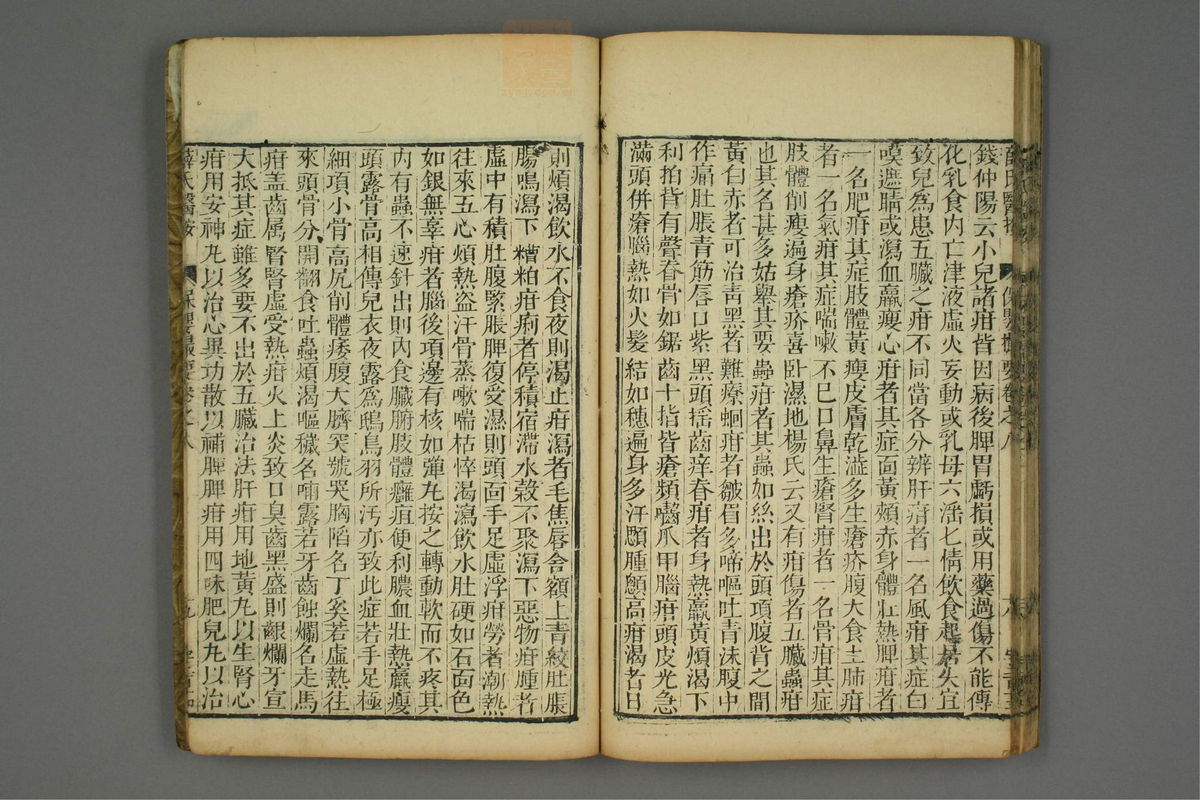 錢仲陽云小兒諸疳皆因病後脾胃虧損或用藥過傷不能傳
化乳食內亡津液虛火妄動或乳母六淫七情飲食起居失宜
致兒為患五臟之疳不同當各分辨肝疳者一名風疳其症白
嗼遮睛或瀉血羸瘦心疳者其症面黃頰赤身體壯熱脾疳者
一名肥疳其症肢體黃瘦皮膚乾澁多生瘡疥腹大食土肺疳
者一名氣疳其症喘嗽不已口鼻生瘡腎疳者一名骨疳其症
肢體削瘦遍身瘡疥喜臥濕地楊氏云又有疳傷者五臟蟲疳
也其名甚多姑舉其要蟲疳者其蟲如絲出於頭項腹背之間
黃白赤者可治青黑者難療蛔疳者皺眉多啼嘔吐青沫腹中
作痛肚脹青筋唇口紫黑頭搖齒痒脊疳者身熱羸黃煩渴下
利拍背有聲脊骨如鋸齒十指皆瘡頻嚙爪甲腦疳頭皮光急
滿頭併瘡腦熱如火髮結如穗遍身多汗顋腫顖高疳渴者日
則煩渴飲水不食夜則渴止疳瀉者毛焦唇舍額上青紋肚脹
腸鳴瀉下糟粕疳痢者停積宿滯水穀不聚瀉下惡物疳腫者
虛中有積肚腹緊脹脾復受濕則頭面手足虛浮疳勞者潮熱
往來五心煩熱盗汗骨蒸嗽喘枯悴渴瀉飲水肚硬如石面色
如銀無辜疳者腦後項邊有核如彈丸按之轉動軟而不疼其
內有蟲不速針出則內食臟腑肢體癰疽便利膿血壯熱羸瘦
頭露骨高相傳兒衣夜露為鴟鳥羽所汚亦致此症若手足極
細項小骨高尻削體痿腹大臍突號哭胸陷名丁奚若虛熱往
來頭骨分開翻食吐蟲煩渴嘔穢名哺露若牙齒蝕爛名走馬
疳盖齒属腎腎虛受熱疳火上炎致口臭齒黑盛則齦爛牙宣
大抵其症雖多要不出於五臟治法肝疳用地黃丸以生腎心
疳用安神丸以治心異功散以補脾脾疳用四味肥兒丸以治
薛氏醫按
保嬰撮要卷之八